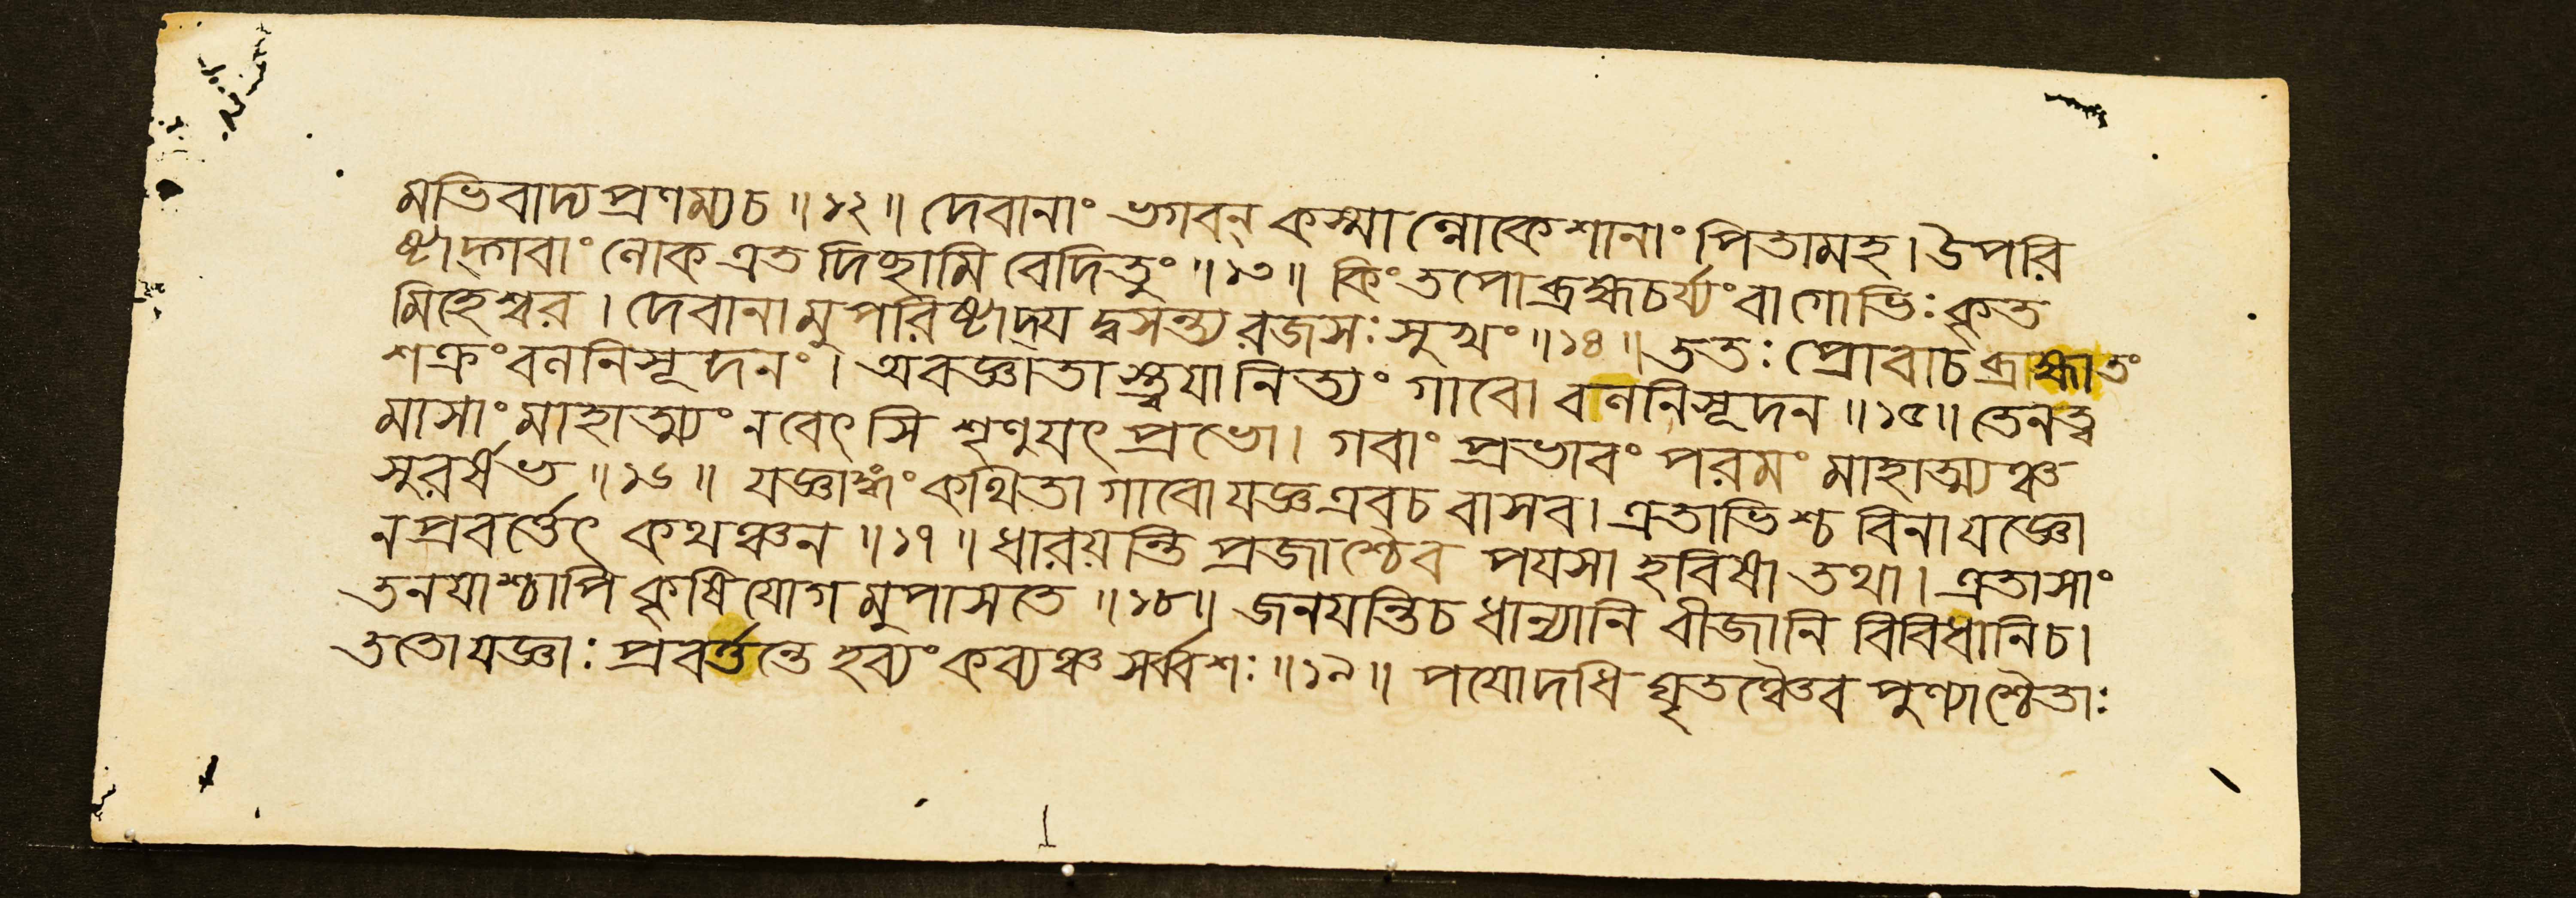 মভিবাদ্য প্রণম্য চ ॥ ১২ ॥ দেবানাং ভগবন্ কস্মাল্লোকেশানাং পিতামহ । উপরি
ষ্টাদ্গবাং লোক এত দিচ্ছামি বেদিতুং ॥ ১৩ ॥ কিং তপো ব্রহ্মচর্য্যং বা গোভিঃ কৃত
মিহেশ্বর । দেবানামুপরিষ্টাদ্য দ্বসন্ত্যরজসঃ সুখং ॥ ১৪ ॥ ততঃ প্রোবাচ ব্রহ্মা তং
শক্রং বলনিসূদনং । অবজ্ঞাতাস্ত্বয়া নিত্যং গাবো বলনিসূদন ॥ ১৫ ॥ তেন ত্ব
মাসাং মাহাত্ম্যং ন বেৎসি শৃণু যৎ প্রভো । গবাং প্রভাবং পরমং মাহাত্ম্যঞ্চ
সুরর্ষভ ॥ ১৬ ॥ যজ্ঞাঙ্গং কথিতা গাবো যজ্ঞ এব চ বাসব । এতাভিশ্চ বিনা যজ্ঞো
ন প্রবর্ত্তেৎ কথঞ্চন ॥ ১৭ ॥ ধারয়ন্তি প্রজাশ্চৈব পয়সা হবিষা তথা । এতাসাং
তনয়াশ্চাপি কৃষিযোগমুপাসতে ॥ ১৮ ॥ জনয়ন্তি চ ধান্যানি বীজানি বিবিধানি চ ।
ততো যজ্ঞাঃ প্রবর্ত্তন্তে হব্যং কব্যঞ্চ সর্ব্বশঃ ॥ ১৯ ॥ পয়োদধি ঘৃতঞ্চৈব পুণ্যাশ্চৈতাঃ